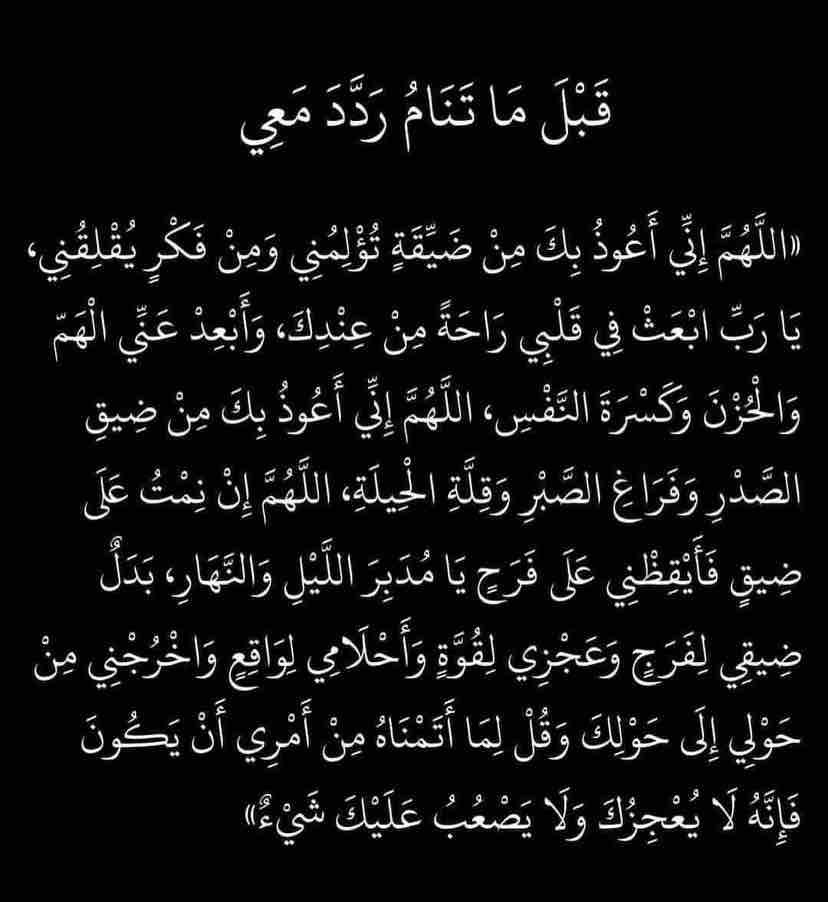 قَبْلَ مَا تَنَامُ رَدَّدَ مَعِي
«اللَّهُمَّ إِنِّي أَعُوذُ بِكَ مِنْ ضَيِّقَةٍ تُؤْلِمُنِي وَمِنْ فَكْرٍ يُقْلِقُنِي،
يَا رَبِّ ابْعَثْ فِي قَلْبِي رَاحَةً مِنْ عِنْدِكَ، وَأَبْعِدْ عَنِّي الْهَمّ
وَالْحُزْنَ وَكَسْرَةَ النَّفْسِ، اللَّهُمَّ إِنِّي أَعُوذُ بِكَ مِنْ ضِيقِ
الصَّدْرِ وَفَرَاغِ الصَّبْرِ وَقِلَّةِ الْحِيلَةِ، اللَّهُمَّ إِنْ نِمْتُ عَلَى
ضِيقٍ فَأَيْقِظْنِي عَلَى فَرَحٍ يَا مُدَبِرَ اللَّيْلِ وَالنَّهَارِ، بَدَلٌ
ضِيقِي لِفَرَجٍ وَعَجْزِي لِقُوَّةٍ وَأَحْلَامِي لِوَاقِعٍ وَاخْرُجْنِي مِنْ
حَوْلِي إِلَى حَوْلِكَ وَقُلْ لِمَا أَتَمْنَاهُ مِنْ أَمْرِي أَنْ يَكُونَ
فَإِنَّهُ لَا يُعْجِزُكَ وَلَا يَصْعُبُ عَلَيْكَ شَيْءٌ»